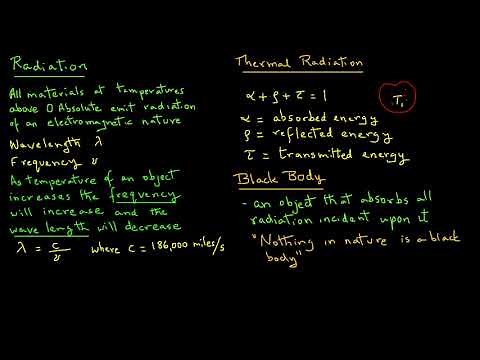 Radiation
All materials at temperatures
above 0 Absolute emit radiation
of an electromagnetic nature
Wavelength λ
Frequency ν
As temperature of an object
increases the frequency
will increase and the
wave length will decrease
λ = c/ν where c = 186,000 miles/s
Thermal Radiation
α + ρ + τ = 1
T₁
α = absorbed energy
ρ = reflected energy
τ = transmitted energy
Black Body
- an object that absorbs all
radiation incident upon it
"Nothing in nature is a black
body"